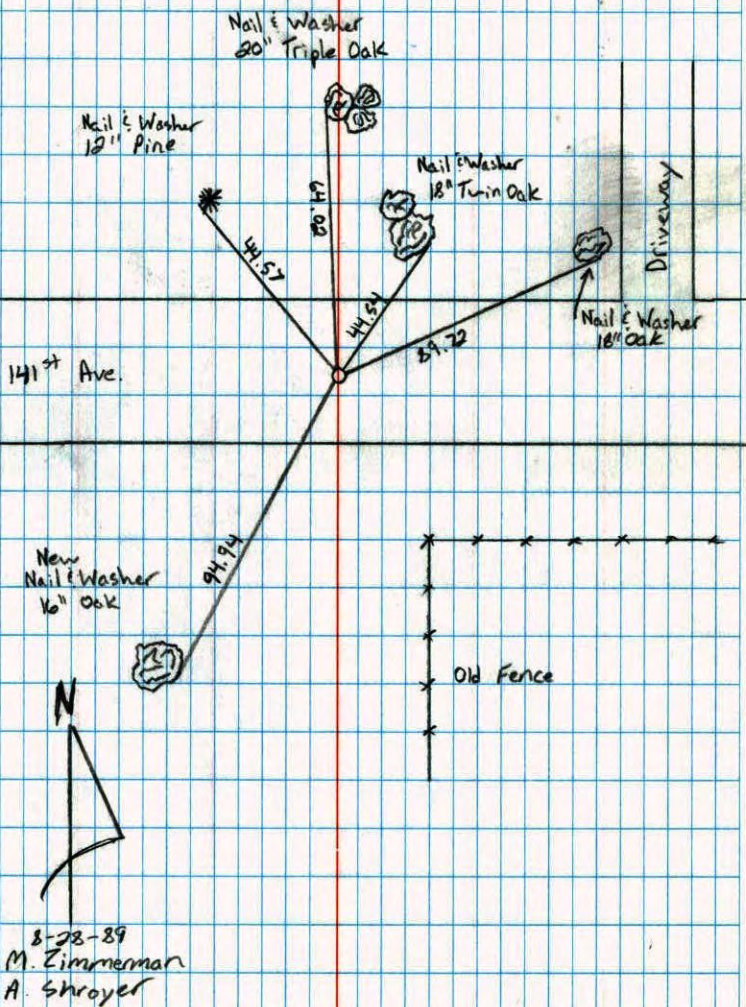 Nail & Washer
20" Triple Oak
Nail & Washer
12" Pine
Nail & Washer
18" Twin Oak
Driveway
64.02
44.57
44.54
89.72
Nail & Washer
18" Oak
141st Ave.
94.94
New
Nail & Washer
16" Oak
Old Fence
N
8-28-89
M. Zimmerman
A. Shroyer